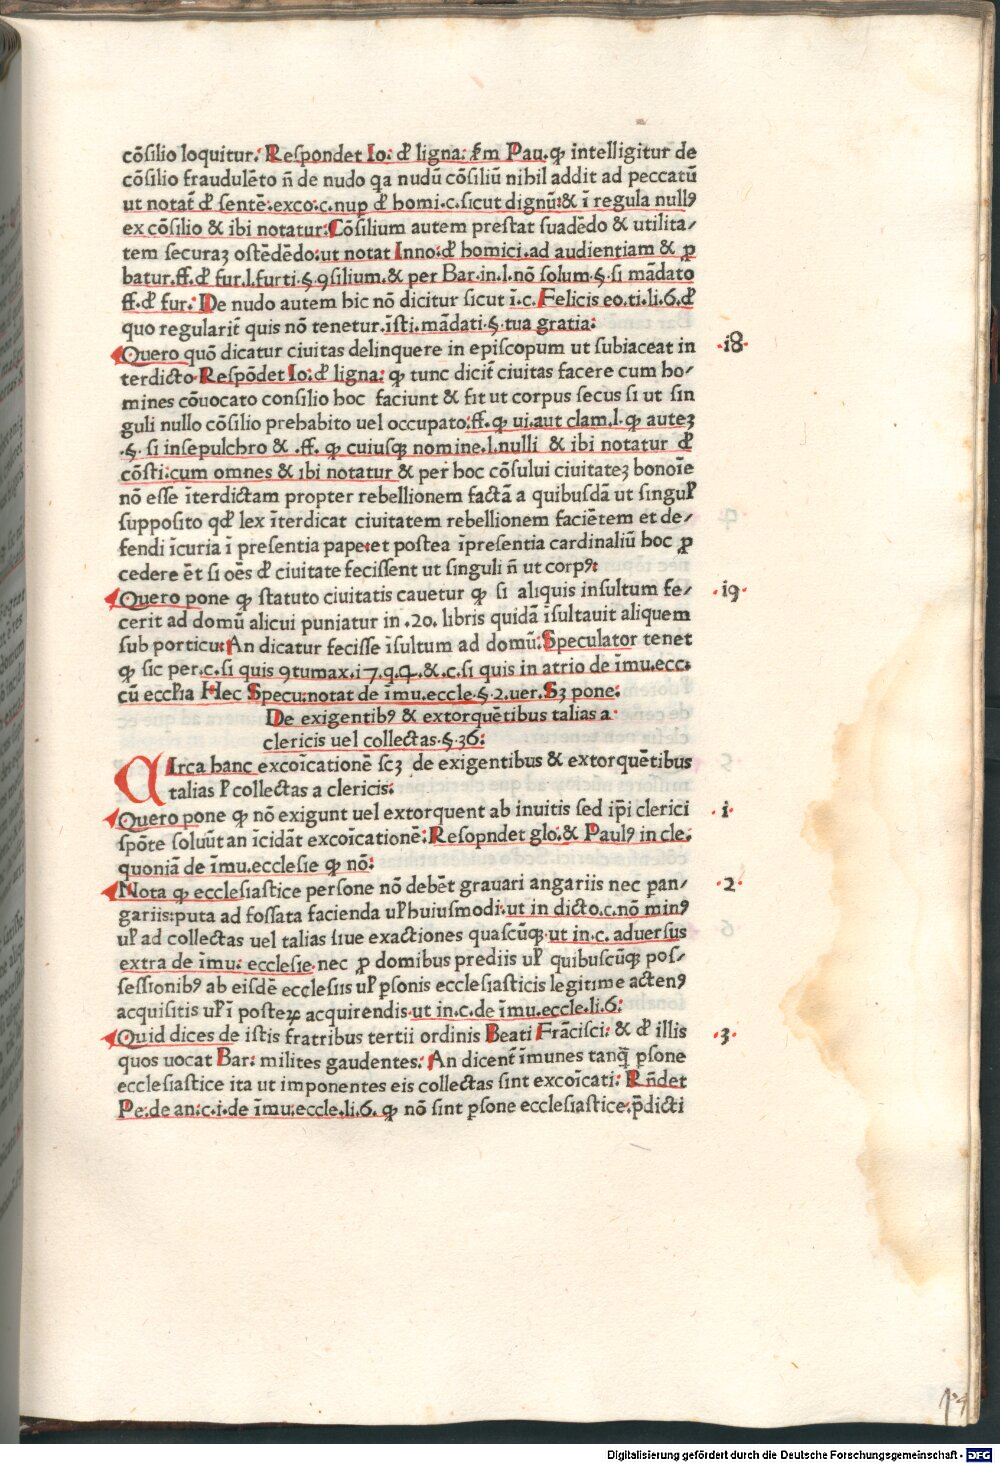 cõsilio loquitur: Respondet Io: đ ligna: ẜm Pau. ꝙ intelligitur de
cõsilio fraudulẽto ñ de nudo qa nudũ cõsiliũ nihil addit ad peccatũ
ut notat̃ đ sentẽ: exco: c. nup đ homi. c. sicut dignũ: & ĩ regula nullꝰ
ex cõsilio & ibi notatur: Cõsilium autem prestat suadẽdo & utilita/
tem securaꝫ ostẽdẽdo: ut notat Inno: đ homici. ad audientiam & ꝓ
batur. ff. đ fur. l. furti. §. ꝯsilium. & per Bar. in. l. nõ solum. §. si mãdato
ff. đ fur: De nudo autem hic nõ dicitur sicut ĩ. c. Felicis eo. ti. li. 6. đ
quo regularit̃ quis nõ tenetur. ĩsti. mãdati. §. tua gratia:
Quero quõ dicatur ciuitas delinquere in episcopum ut subiaceat in .i8.
terdicto. Respõdet Io: đ ligna: ꝙ tunc dicit̃ ciuitas facere cum ho/
mines cõuocato consilio hoc faciunt & fit ut corpus secus si ut sin
guli nullo cõsilio prehabito uel occupato: ff. ꝙ ui. aut clam. l. ꝙ auteꝫ
.§. si insepulchro & .ff. ꝙ cuiusqꝫ nomine. l. nulli & ibi notatur đ
cõsti: cum omnes & ibi notatur & per hoc cõsului ciuitateꝫ bonoĩe
nõ esse ĩterdictam propter rebellionem factã a quibusdã ut singuł
supposito qđ lex ĩterdicat ciuitatem rebellionem faciẽtem et de/
fendi ĩcuria ĩ presentia pape: et postea ĩpresentia cardinaliũ hoc ꝓ
cedere ẽt si oẽs đ ciuitate fecissent ut singuli ñ ut corpꝰ:
Quero pone ꝙ statuto ciuitatis cauetur ꝙ si aliquis insultum fe/ .i9.
cerit ad domũ alicui puniatur in .20. libris quidã ĩsultauit aliquem
sub porticu: An dicatur fecisse ĩsultum ad domũ: Speculator tenet
ꝙ sic per. c. si quis ꝯtumax. i7. q. 4. & . c. si quis in atrio de ĩmu. ecc:
cũ eccłia Hec Specu: notat de ĩmu. eccle. §. 2. uer. Sꝫ pone:
De exigentibꝰ & extorquẽtibus talias a:
clericis uel collectas. §. 36:
CIrca hanc excoĩcationẽ scꝫ de exigentibus & extorquẽtibus
talias ł collectas a clericis:
Quero pone ꝙ nõ exigunt uel extorquent ab inuitis sed ip̃i clerici .i.
spõte soluũt an ĩcidãt excoĩcationẽ: Resopndet glo: & Paulꝰ in cle:
quoniã de ĩmu. ecclesie ꝙ nõ:
Nota ꝙ ecclesiastice persone nõ debẽt grauari angariis nec pan/ .2.
gariis: puta ad fossata facienda uł huiusmodi. ut in dicto. c. nõ minꝰ
uł ad collectas uel talias siue exactiones quascũqꝫ. ut in. c. aduersus
extra de ĩmu: ecclesie. nec ꝓ domibus prediis uł quibuscũqꝫ pos/
sessionibꝰ ab eisdẽ ecclesiis uł ꝑsonis ecclesiasticis legitime actenꝰ
acquisitis uł ĩ posteꝝ acquirendis. ut in. c. de ĩmu. eccle. li. 6:
Quid dices de istis fratribus tertii ordinis Beati Frãcisci: & đ illis .3.
quos uocat Bar: milites gaudentes: An dicent̃ ĩmunes tanq̃ ꝑsone
ecclesiastice ita ut imponentes eis collectas sint excoĩcati: Rñdet
Pe: de an: c. i. de ĩmu. eccle. li. 6. ꝙ nõ sint ꝑsone ecclesiastice: p̃dicti
Digitalisierung gefördert durch die Deutsche Forschungsgemeinschaft - DFG